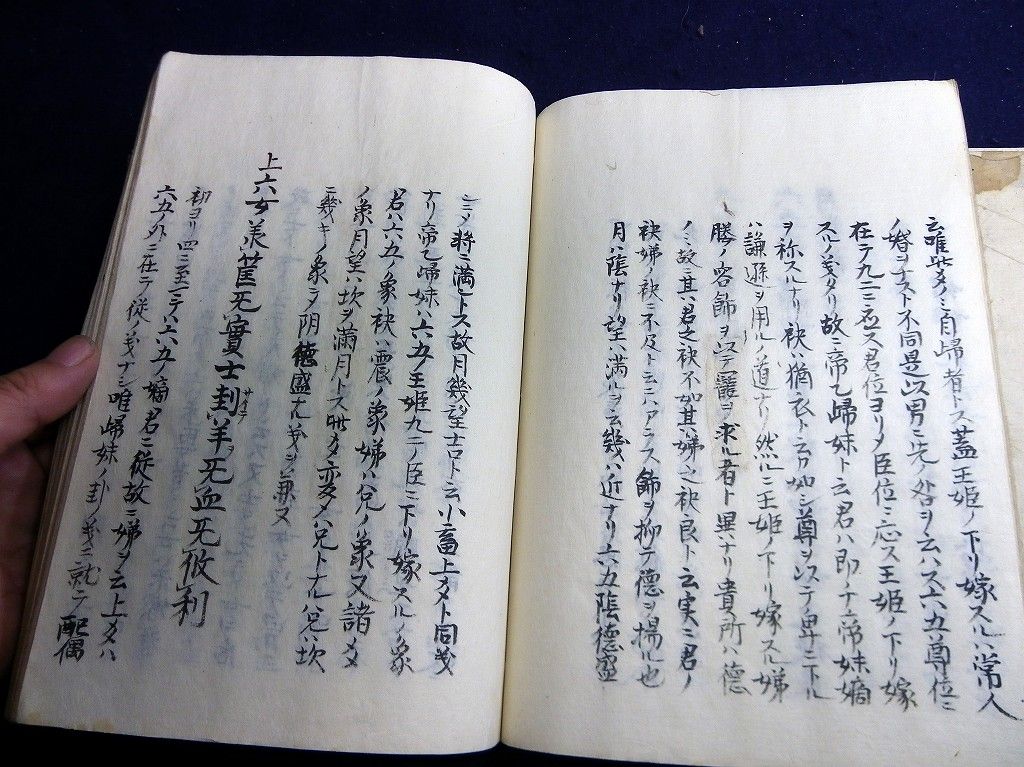 云唯此爻ノミ自帰者トス蓋王姫ノ下リ嫁スルハ常人
ノ婚ヲナスト不同是以男ニ先ノ咎ヲ云ハス六五尊位ニ
在テ九二ニ応ス君位ヨリメ臣位ニ応ス王姫ノ下リ嫁
スルノ義タリ故ニ帝乙帰妹ト云君ハ即チ帝妹嫡
ヲ称スルナリ袂ハ猶衣ト云カ如シ尊ヲ以テ卑ニ下ル
ハ謙遜ヲ用ルノ道ナリ然ルニ王姫ノ下リ嫁スル娣
勝ノ容飾ヲ以テ寵ヲ求ル者ト異ナリ貴所ハ徳
ノミ故ニ其ハ君之袂不如其娣之袂良ト云実ニ君ノ
袂娣ノ袂ニ不及ト云ニハアラス飾ヲ抑テ徳ヲ揚ル也
月ハ陰ナリ望ハ満ルヲ云幾ハ近ナリ六五陰徳盛
ニメ将ニ満ントス故月幾望吉ト云小畜上爻ト同義
ナリ帝乙帰妹ハ六五ノ王姫九二ノ臣ニ下リ嫁スルノ象
君ハ六五ノ象袂ハ震ノ象娣ハ兌ノ象又諸爻
ノ象月望ハ坎ヲ満月トス此爻変メハ兌トナル八兌ハ坎
ニ幾キノ象ヲ阴徳盛ナル義ヲ兼ヌ
上六女羕筐旡實士刲羊旡血旡攸利
サキテ
初ヨリ四ニ至ニテハ六五ノ嫡君ニ従故ニ娣ヲ云上爻ハ
六五ノ外ニ在テ従ノ義ナシ唯帰妹ノ卦義ニ就テ配偶